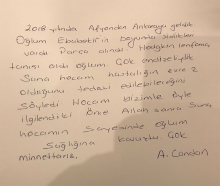 2018 yılında Afyondan Ankaraya geldik
Oğlum Ebubekir'in boynunda şişlikleri
vardı Parça alındı. Hodgkin lenfoma
tanısı aldı oğlum. Çok endişeliydik
Suna hocam hastalığın evre 2
olduğunu tedavi edilebileceğini
Söyledi Hocam bizimle öyle
ilgilendiki Önce Allah sonra Suna
hocamın Sayesinde oğlum
Sağlığına kavuştu. Çok
minnettarız.
A. Candan